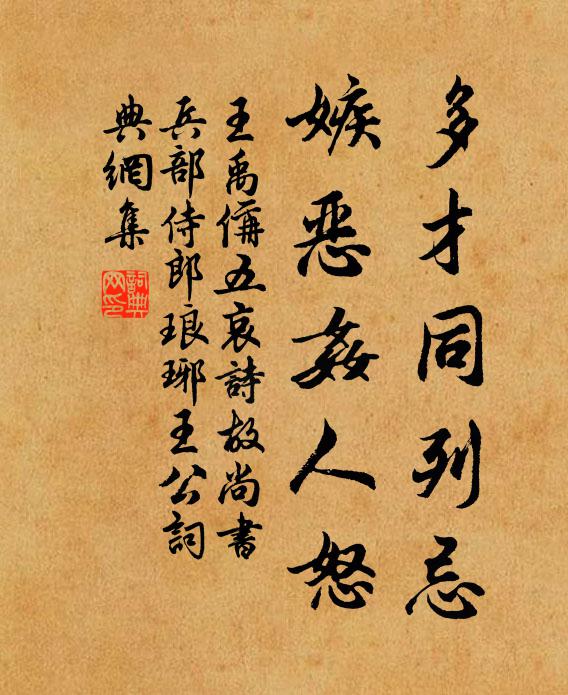 多才同列忌
嫉恶姦人怒
王禹偁五哀詩故尚書
兵部侍郎琅琊王公詞
典網集
詞典网印